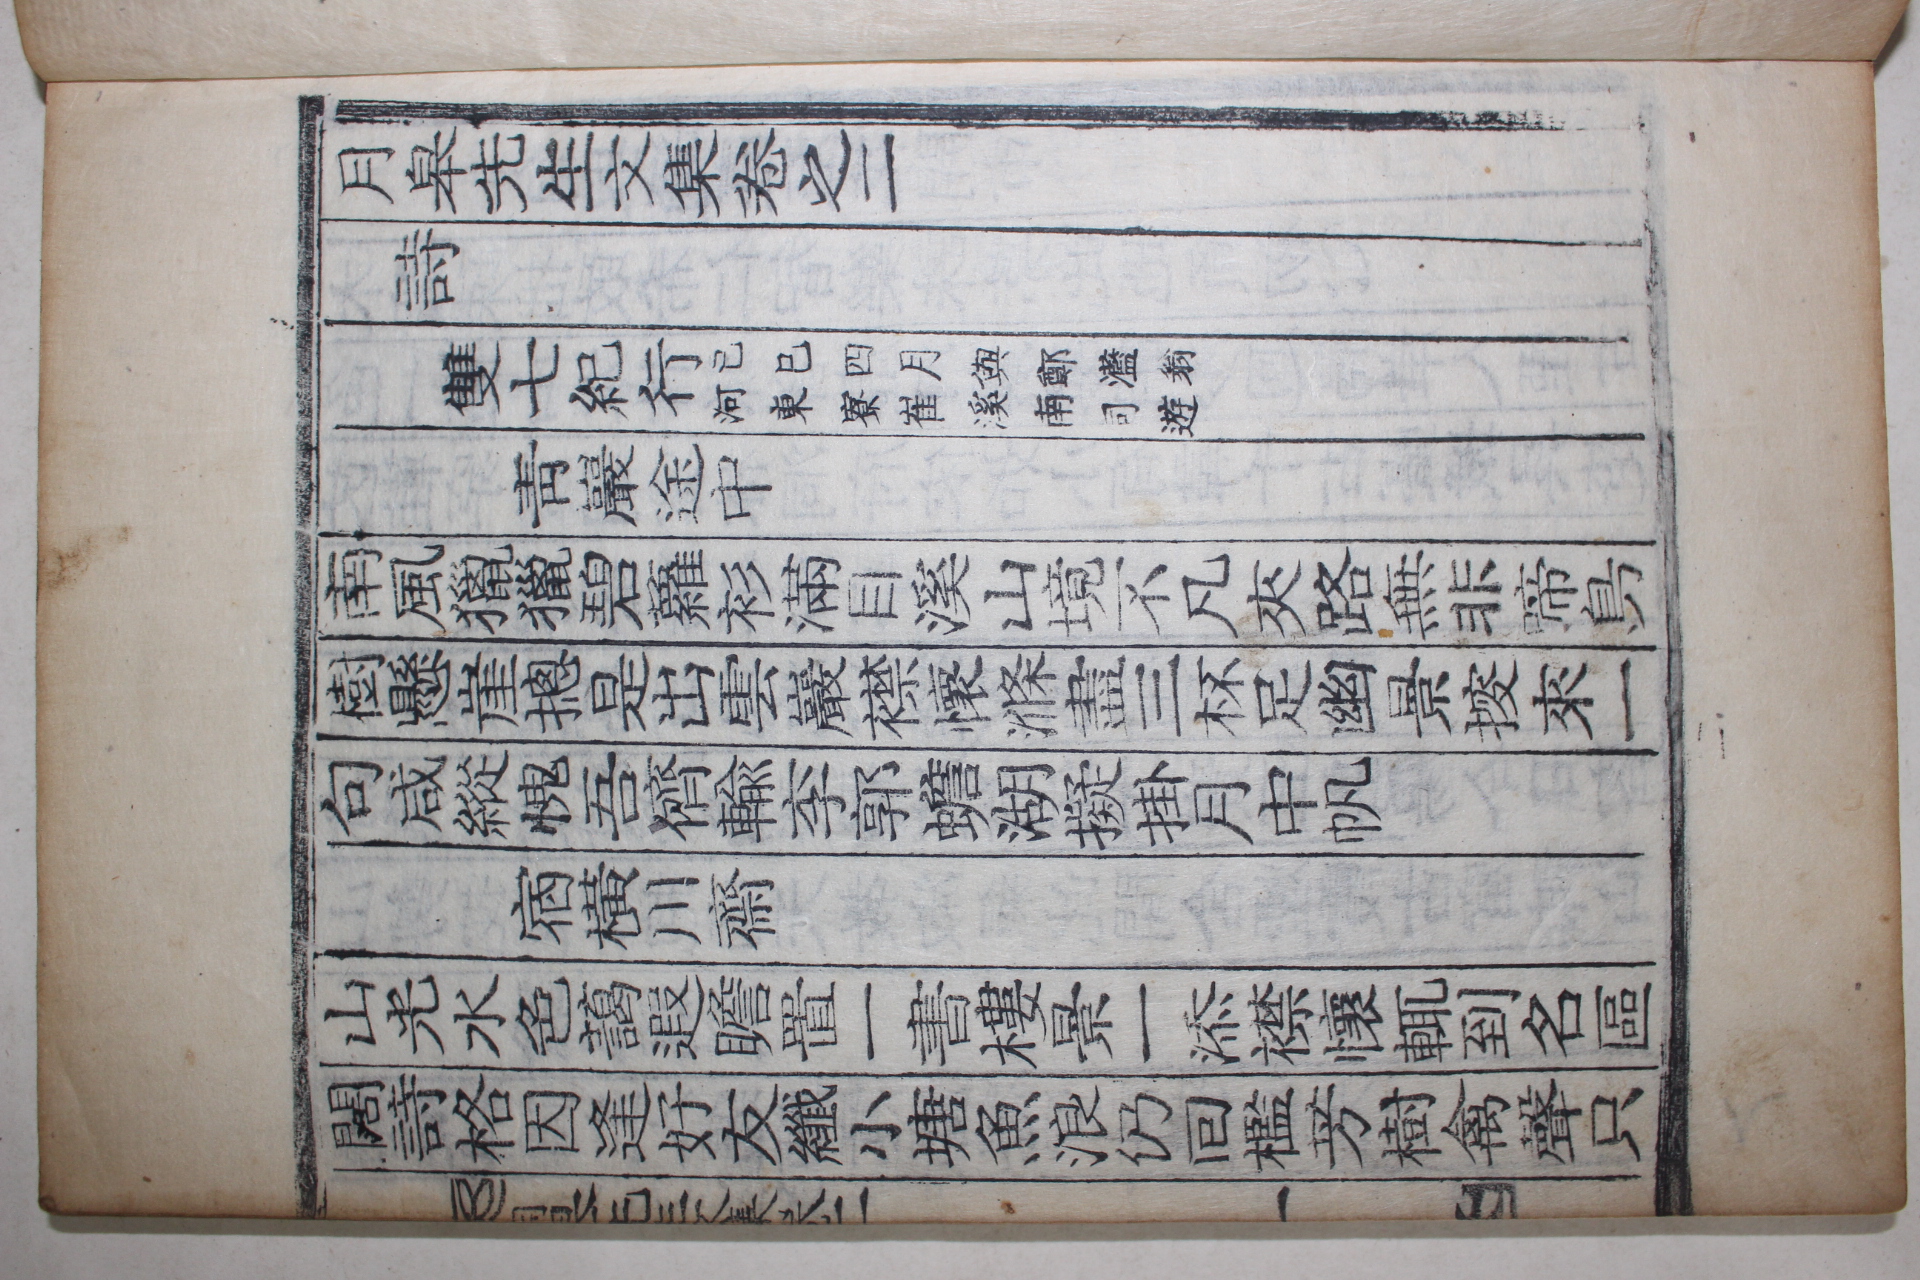 月皐先生文集卷之二
詩
雙七紀行
己巳四月與鄭灆翁
河東寮崔溪南同遊
靑巖途中
南風獵獵碧蘿衫滿目溪山境不凡夾路無非啼鳥
樹懸崖摠是出雲巖襟懷滌盡三杯足幽景搜來一
句咸縱愧吾儕輸李郭蟾湖擬掛月中帆
宿橫川齋
山光水色藹遐瞻置一書樓景一添襟懷輒到名區
闊詩格因逢好友纖小塘魚浪仍回檻芳樹禽聲只